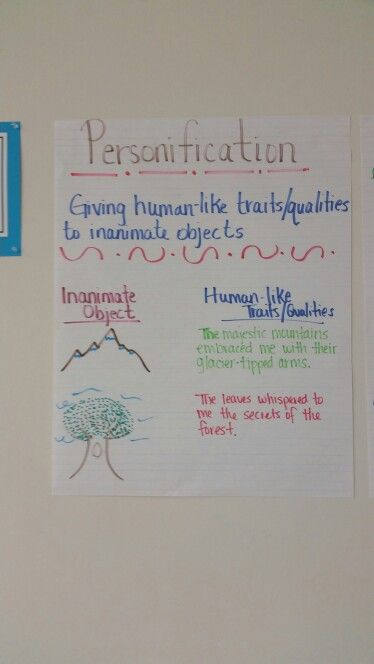 Personification
Giving human-like traits/qualities
to inanimate objects
Inanimate
Object
Human-like
Traits/Qualities
The majestic mountains
embraced me with their
glacier-tipped arms.
The leaves whispered to
me the secrets of the
forest.